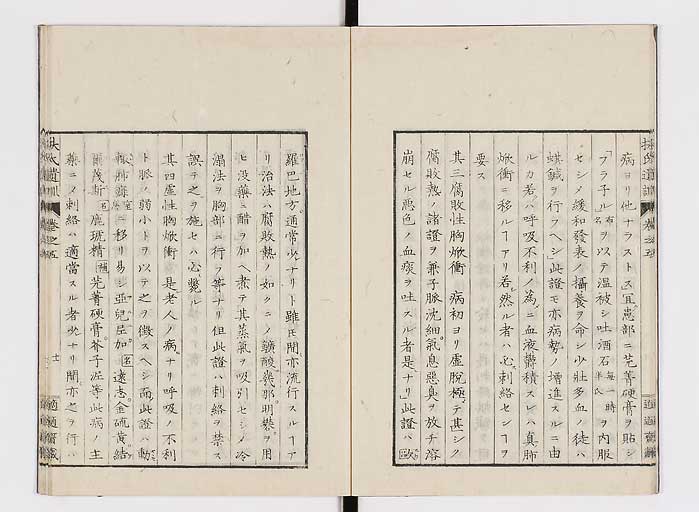 病ヨリ他ナラストス宜ク患部ニ芫菁硬膏ヲ貼シ
「フラ子ル」布名ヲ以テ温被シ吐酒石毎一時半氏ヲ内服
セシメ緩和發表ノ攝養ヲ命シ少壯多血ノ徒ハ
蜞鍼ヲ行フヘシ此證モ亦病勢ノ増進スルニ由
ルカ若クハ呼吸不利ノ為ニ血液欝積スレハ真肺
焮衝ニ移ルヿアリ若シ然ル者ハ必ス刺絡センヿヲ
要ス
其三腐敗性胸焮衝 病初ヨリ虚脱極テ甚シク
腐敗熱ノ諸證ヲ兼子脈沈細氣息惡臭ヲ放チ溶
崩セル悪色ノ血痰ヲ吐スル者是ナリ此證ハ歐
羅巴地方通常少ナリト雖𪜈間亦流行スルヿア
リ治法ハ腐敗熱ノ如クニノ鑛酸幾那明礬ヲ用
ヒ没藥ニ醋ヲ加ヘ煮テ其蒸氣ヲ吸引セシメ冷
溻法ヲ胸部ニ行フ等ナリ但此證ハ刺絡ヲ禁ス
誤テ之ヲ施セハ必ス斃ル
其四虚性胸焮衝 是老人ノ病ナリ呼吸ノ不利
ト脈ノ弱小トヲ以テ之ヲ徴スヘシ而此證ハ動
モスレハ肺麻痺ニ移リ易シ亜兒尼加遠志金硫黄結
爾茂斯鹿琥精芫菁硬膏芥子泥等此病ノ主
藥ニメ刺絡ハ適當スル者少ナリ間亦之ヲ行ハ
扶氏遺訓 卷之五
適適齋藏